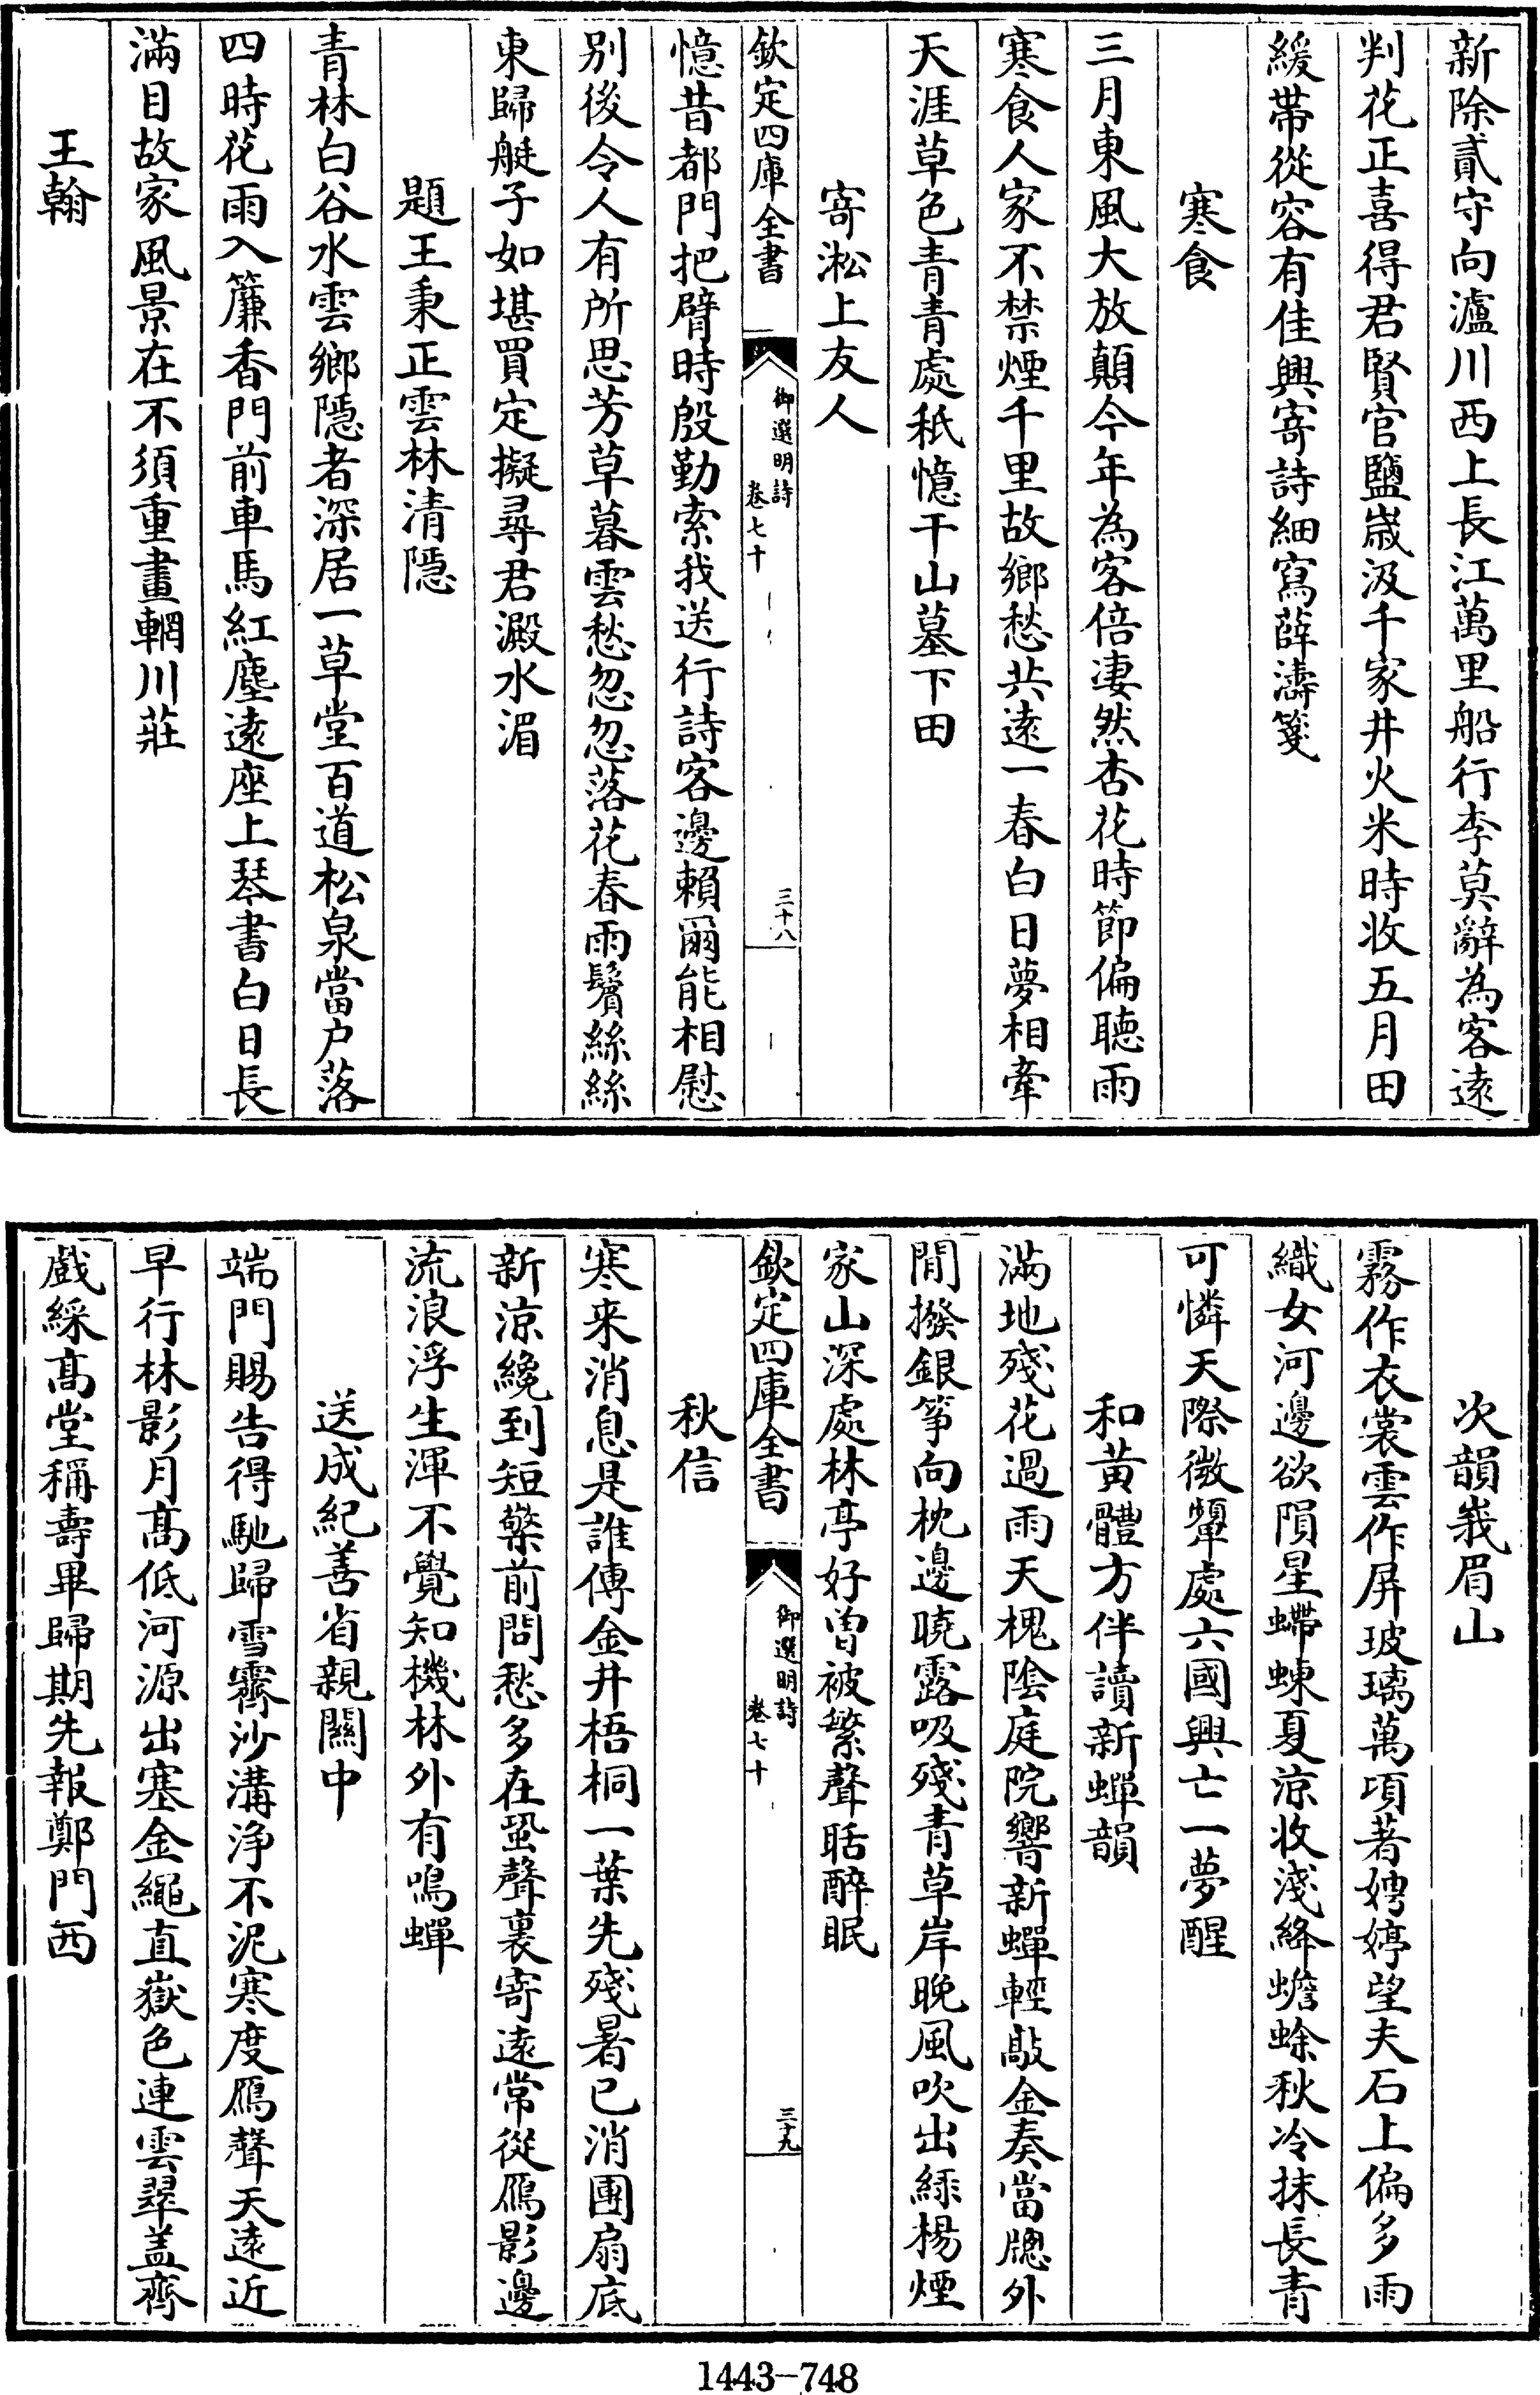 新除貳守向瀘川西上長江萬里船行李莫辭為客遠
判花正喜得君賢官鹽歲汲千家井火米時收五月田
緩帶從容有佳興寄詩細寫薛濤箋
寒食
三月東風大放顛今年為客倍凄然杏花時節偏聽雨
寒食人家不禁煙千里故鄉愁共遠一春白日夢相牽
天涯草色青青處秖憶干山墓下田
寄淞上友人
欽定四庫全書
御選明詩
卷七十
三十八
憶昔都門把臂時殷勤索我送行詩客邊賴爾能相慰
别後令人有所思芳草暮雲愁忽忽落花春雨鬢絲絲
東歸艇子如堪買定擬尋君澱水湄
題王秉正雲林清隱
青林白谷水雲鄉隱者深居一草堂百道松泉當户落
四時花雨入簾香門前車馬紅塵遠座上琴書白日長
滿目故家風景在不須重畫輞川莊
王翰
次韻峩眉山
霧作衣裳雲作屏玻璃萬項著娉婷望夫石上偏多雨
織女河邊欲隕星螮蝀夏凉收淺絳蟾蜍秋冷抹長青
可憐天際微顰處六國興亡一夢醒
和黃體方伴讀新蟬韻
滿地殘花過雨天槐陰庭院響新蟬輕敲金奏當牕外
閒撥銀箏向枕邊曉露吸殘青草岸晚風吹出綠楊煙
家山深處林亭好曽被繁聲聒醉眠
欽定四庫全書
御選明詩
卷七十
三十九
秋信
寒来消息是誰傳金井梧桐一葉先殘暑已消團扇底
新涼纔到短檠前問愁多在蛩聲裏寄遠常從鴈影邊
流浪浮生渾不覺知機林外有鳴蟬
送成紀善省親關中
端門賜告得馳歸雪霽沙溝浄不泥寒度鴈聲天遠近
早行林影月髙低河源出塞金繩直嶽色連雲翠盖齊
戲綵髙堂稱壽畢歸期先報鄭門西
1443-748